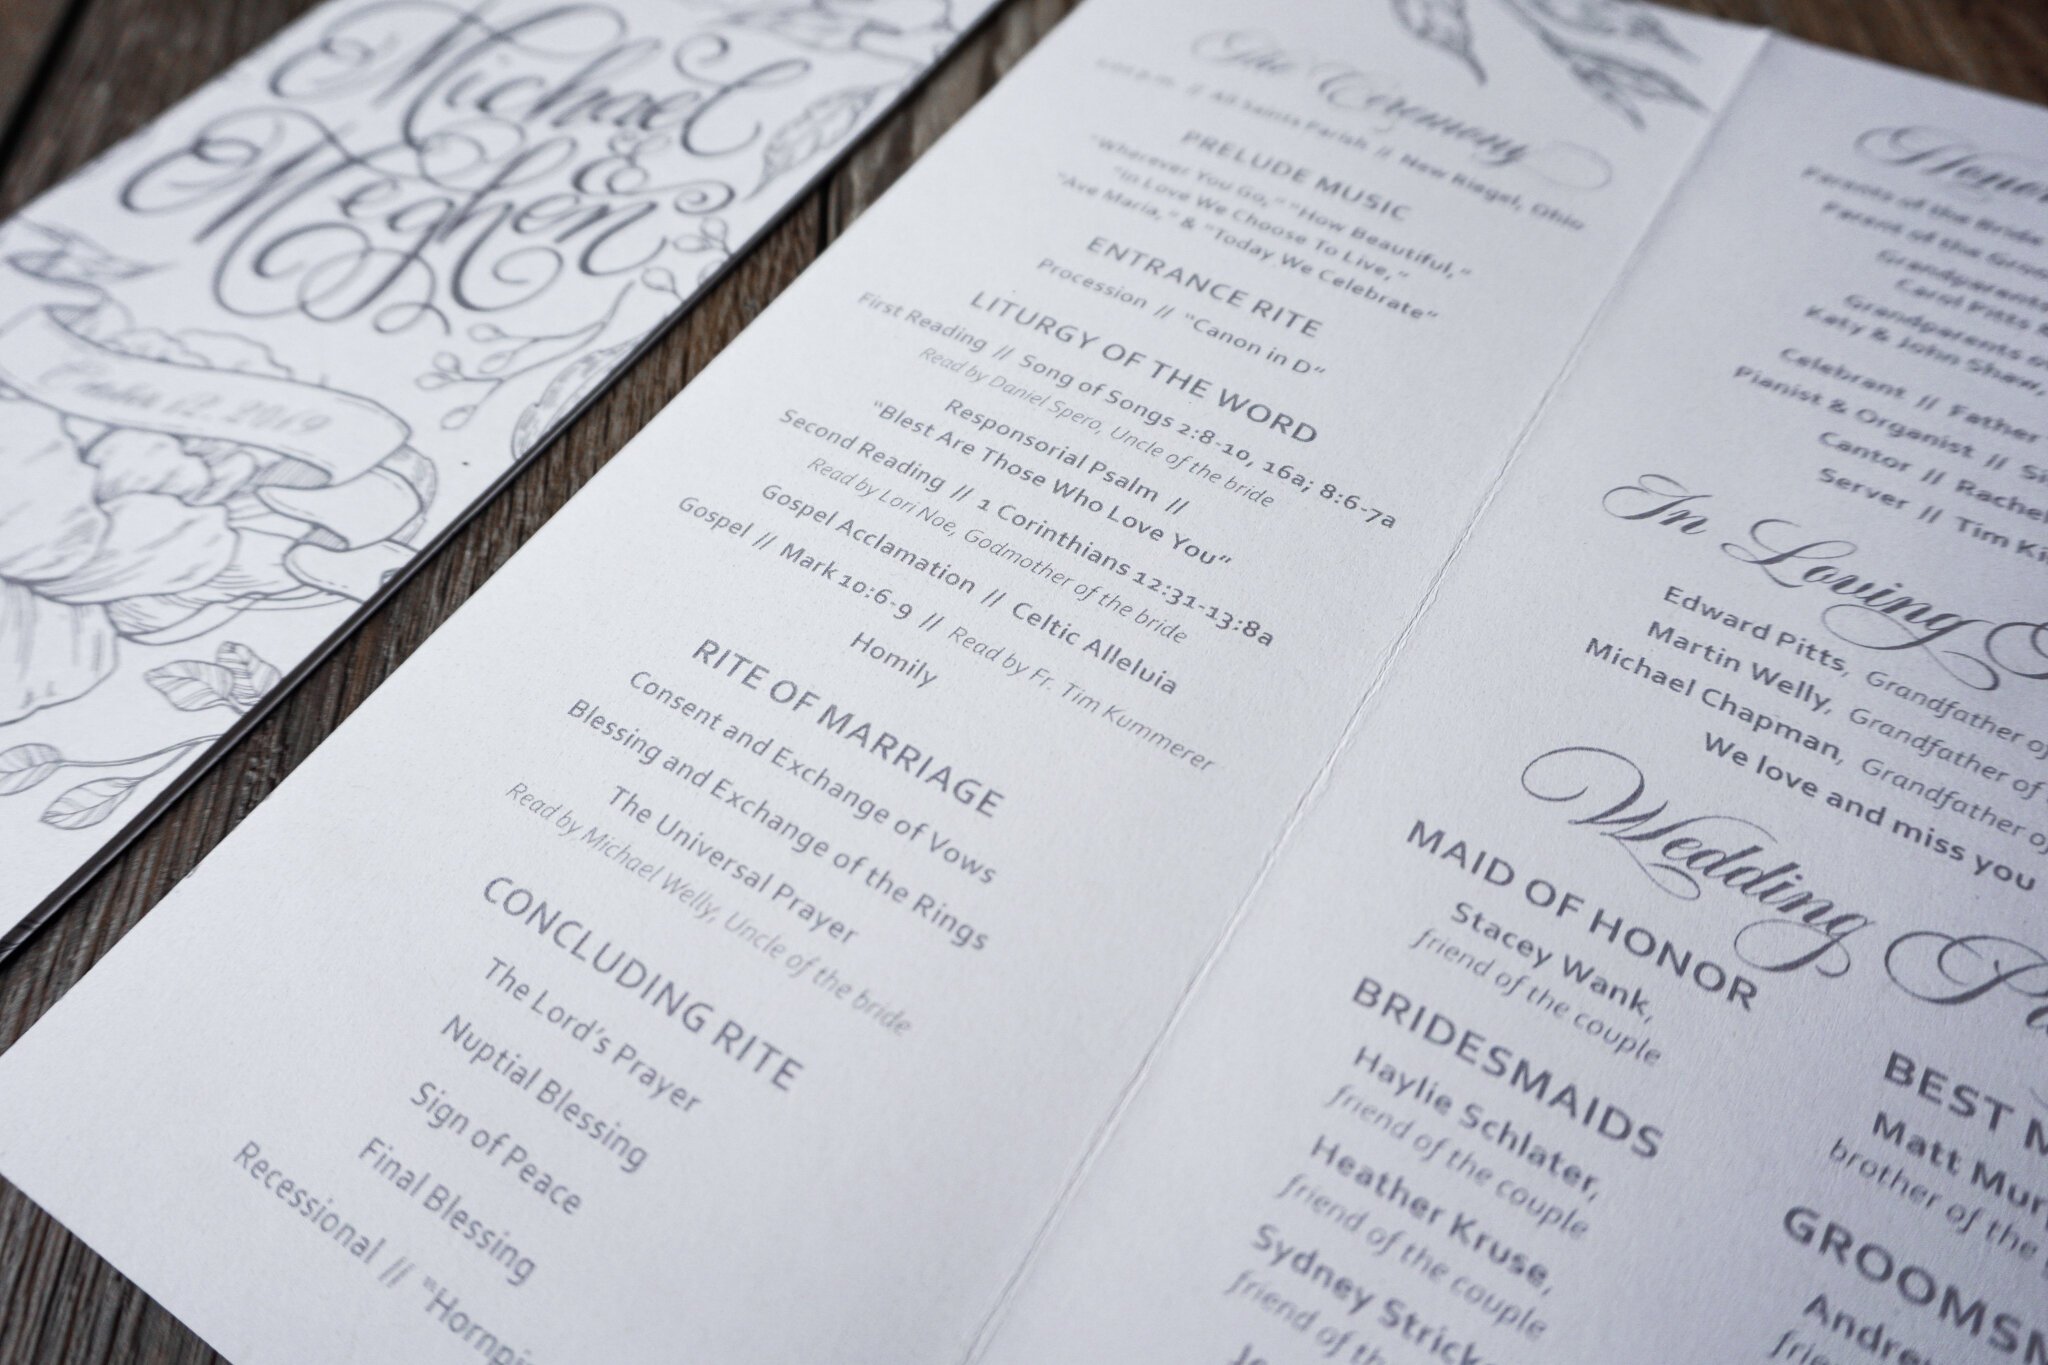 Michael
&
Meghen
October 12, 2019
The Ceremony
p.m. // All Saints Parish // New Riegel, Ohio
PRELUDE MUSIC
"Wherever You Go," "How Beautiful,"
"In Love We Choose To Live,"
"Ave Maria," & "Today We Celebrate"
ENTRANCE RITE
Procession // "Canon in D"
LITURGY OF THE WORD
First Reading // Song of Songs 2:8-10, 16a; 8:6-7a
Read by Daniel Spero, Uncle of the bride
Responsorial Psalm //
"Blest Are Those Who Love You"
Second Reading // 1 Corinthians 12:31-13:8a
Read by Lori Noe, Godmother of the bride
Gospel Acclamation // Celtic Alleluia
Gospel // Mark 10:6-9 // Read by Fr. Tim Kummerer
Homily
RITE OF MARRIAGE
Consent and Exchange of Vows
Blessing and Exchange of the Rings
The Universal Prayer
Read by Michael Welly, Uncle of the bride
CONCLUDING RITE
The Lord's Prayer
Nuptial Blessing
Sign of Peace
Final Blessing
Recessional // "Hornpi
Parents of the Bride
Parent of the Groo
Grandparents
Carol Pitts &
Grandparents o
Katy & John Shaw,
Celebrant // Father
Pianist & Organist // Si
Cantor // Rachel
Server // Tim Ki
In Loving
Edward Pitts, Grandfather of
Martin Welly, Grandfather of
Michael Chapman, Grandfather of
We love and miss you
Wedding
MAID OF HONOR
Stacey Wank,
friend of the couple
BRIDESMAIDS
Haylie Schlater,
friend of the couple
Heather Kruse,
friend of the couple
Sydney Stricke
friend of the
BEST M
Matt Mur
brother of the
GROOMSM
Andre
frie